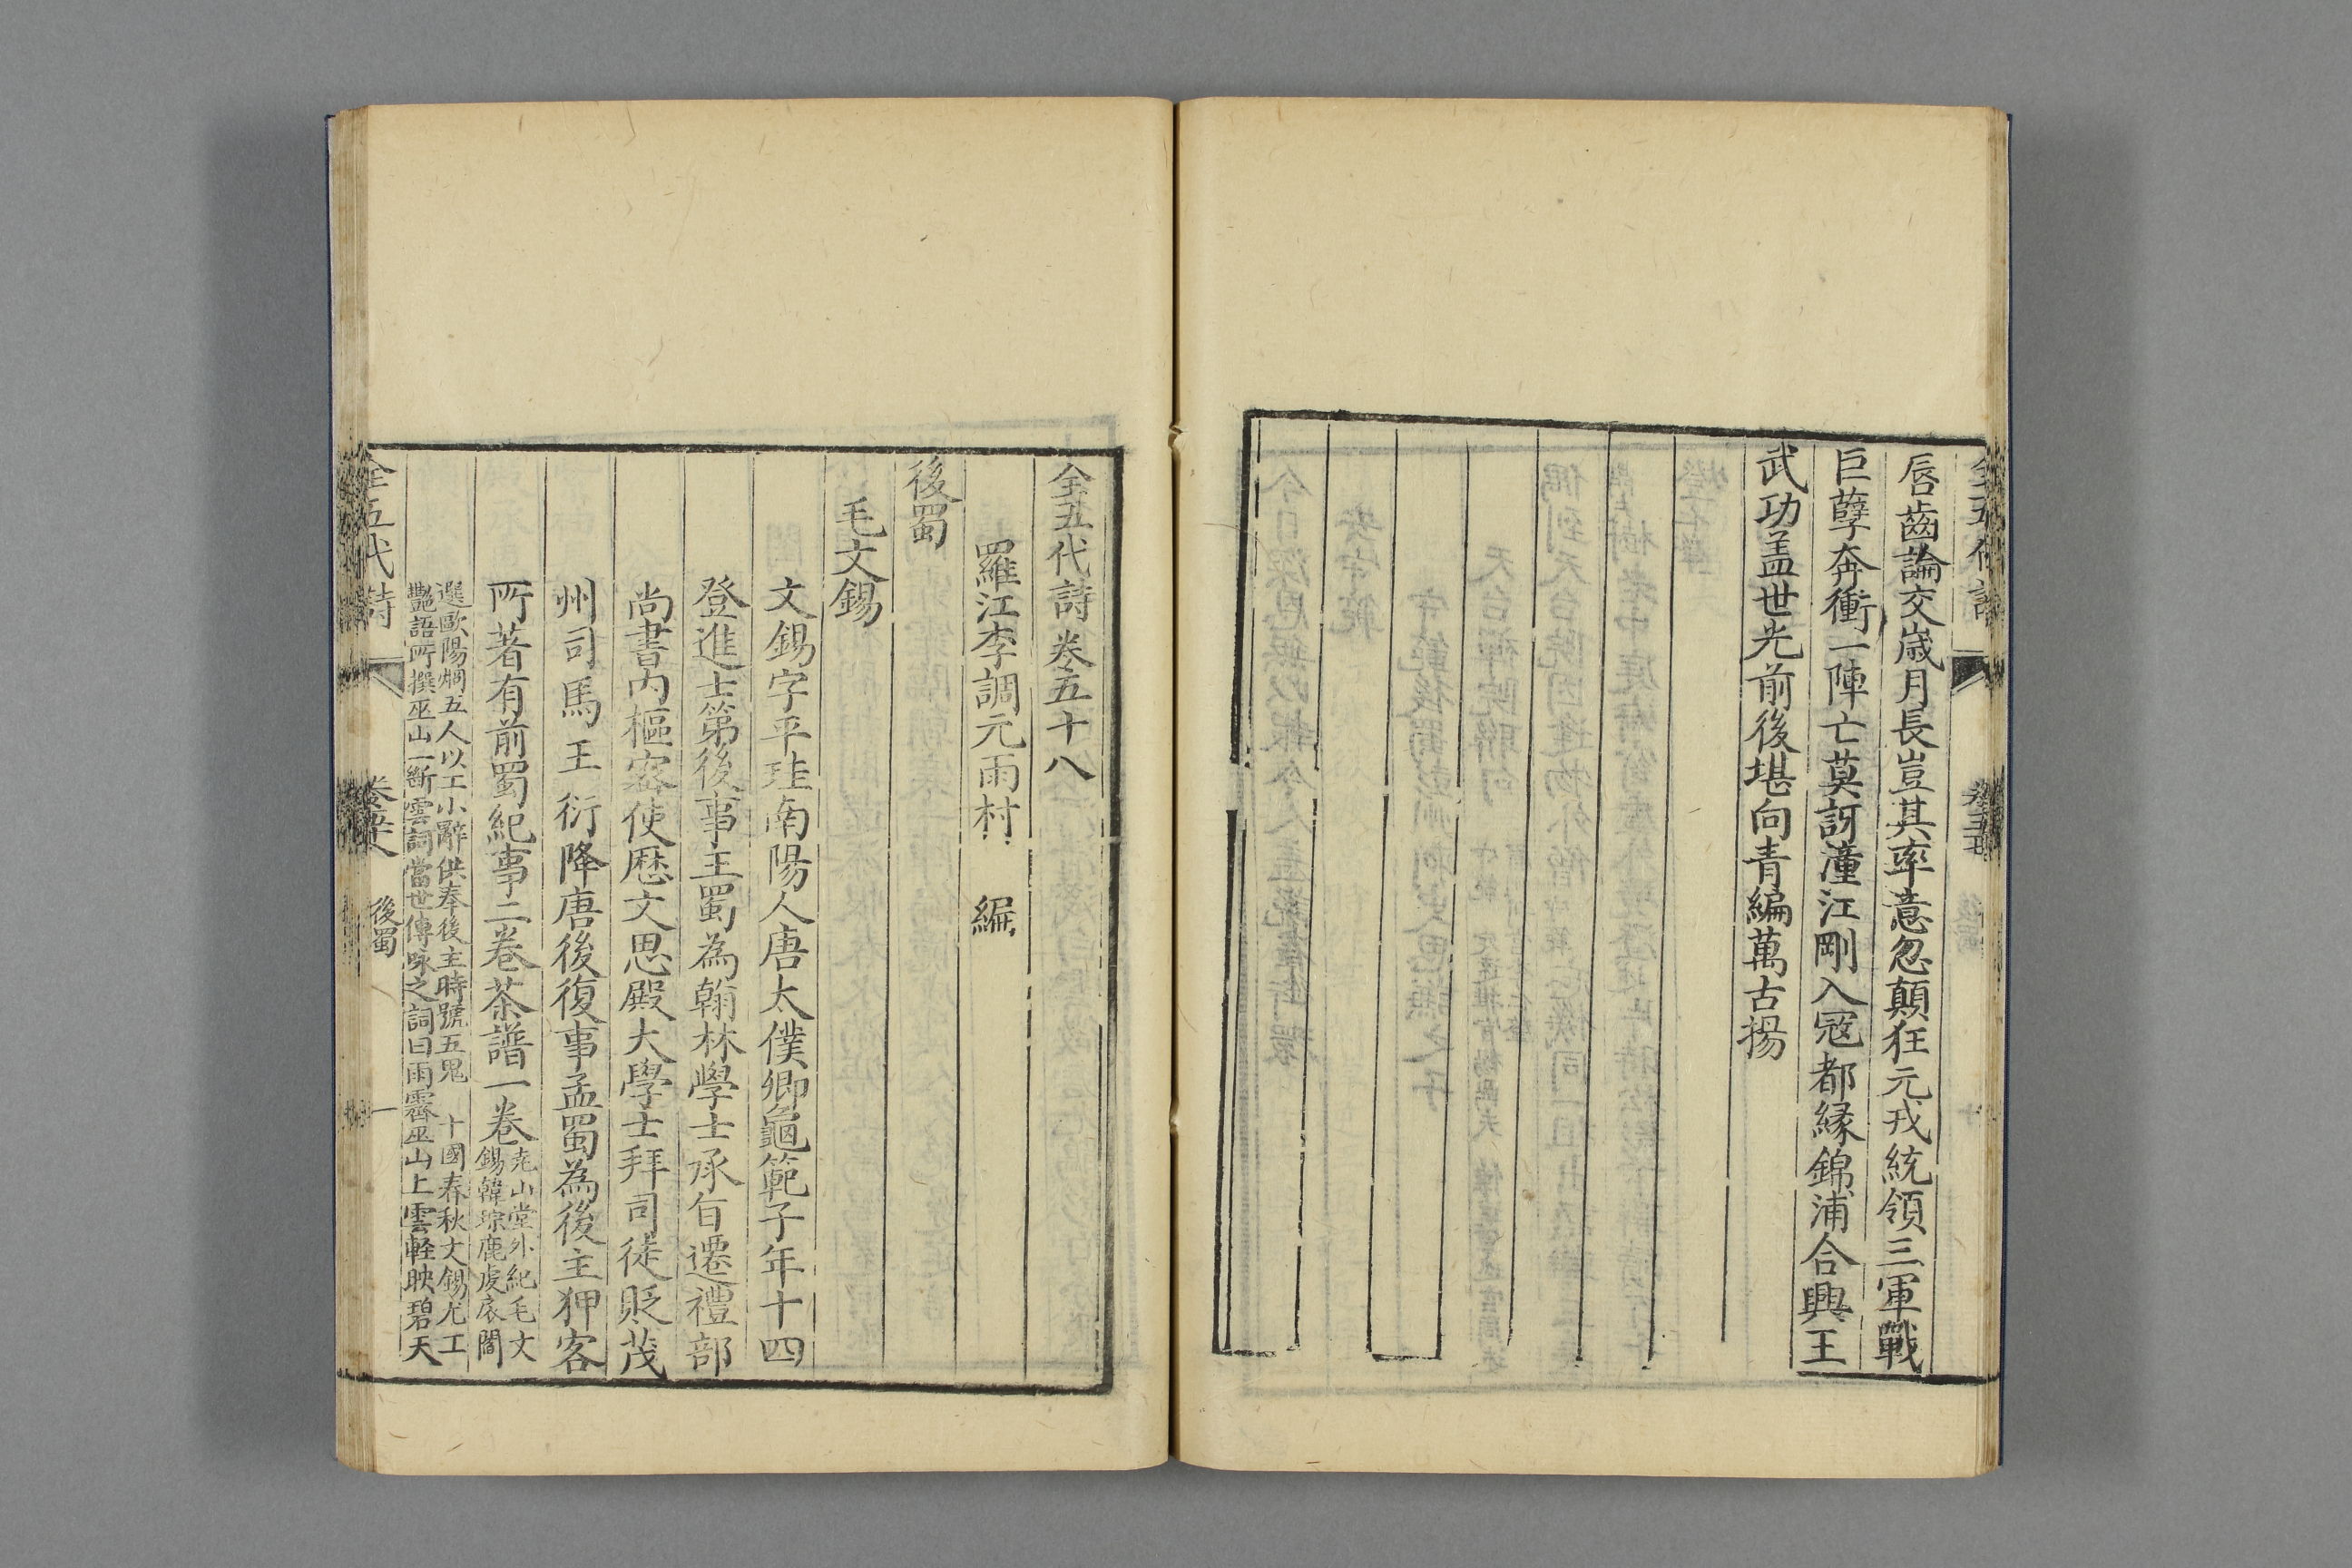 唇齒論交歳月長豈其率意忽顛狂元戎統領三軍戰
巨孽奔衝一陣亡莫訝潼江剛入寇都縁錦浦合興王
武功盖世光前後堪向青編萬古揚
全五代詩卷五十八
羅江李調元雨村 編
後蜀
毛文錫
文錫字平珪南陽人唐太僕卿龜範子年十四
登進士第後事王蜀為翰林學士承旨遷禮部
尚書内樞宻使歴文思殿大學士拜司徒貶茂
州司馬王衍降唐後復事孟蜀為後主狎客
所著有前蜀紀事二卷茶譜一卷
堯山堂外紀毛文
錫韓琮鹿虔扆閻
選歐陽烱五人以工小辭供奉後主時號五鬼 十國春秋文錫尤工
艷語所撰巫山一斷雲詞當世傳咏之詞曰雨霽巫山上雲輕映碧天
全五代詩 卷五十八 後蜀 一